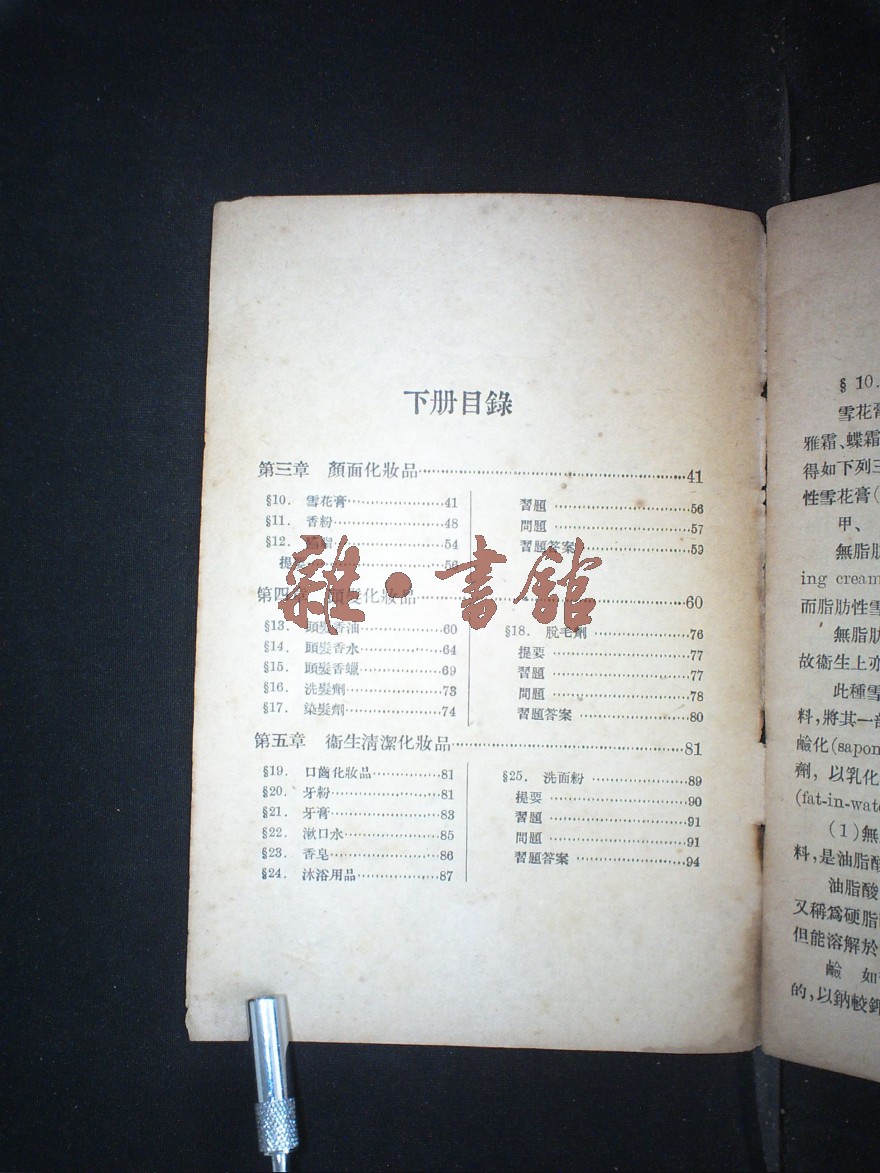 下册目錄
第三章 顏面化妝品 41
§10. 雪花膏 41
§11. 香粉 48
§12. 54
提要 56
習題 56
問題 57
習題答案 59
第四章 頭髮化妝品 60
§13. 頭髮香油 60
§14. 頭髮香水 64
§15. 頭髮香蠟 69
§16. 洗髮劑 73
§17. 染髮劑 74
§18. 脫毛劑 76
提要 77
習題 77
問題 78
習題答案 80
第五章 衞生淸潔化妝品 81
§19. 口齒化妝品 81
§20. 牙粉 81
§21. 牙膏 83
§22. 漱口水 85
§23. 香皂 86
§24. 沐浴用品 87
§25. 洗面粉 89
提要 90
習題 91
問題 91
習題答案 94
雜·書館
§ 10.
雪花膏
雅霜、蝶霜
得如下列三
性雪花膏(
甲、
無脂肪
ing cream
而脂肪性雪
無脂肪
故衞生上亦
此種雪
料,將其一部
鹼化(sapon
劑, 以乳化
(fat-in-wat
(1)無
料,是油脂酸
油脂酸
又稱爲硬脂
但能溶解於
鹼 如
的,以鈉較鉀